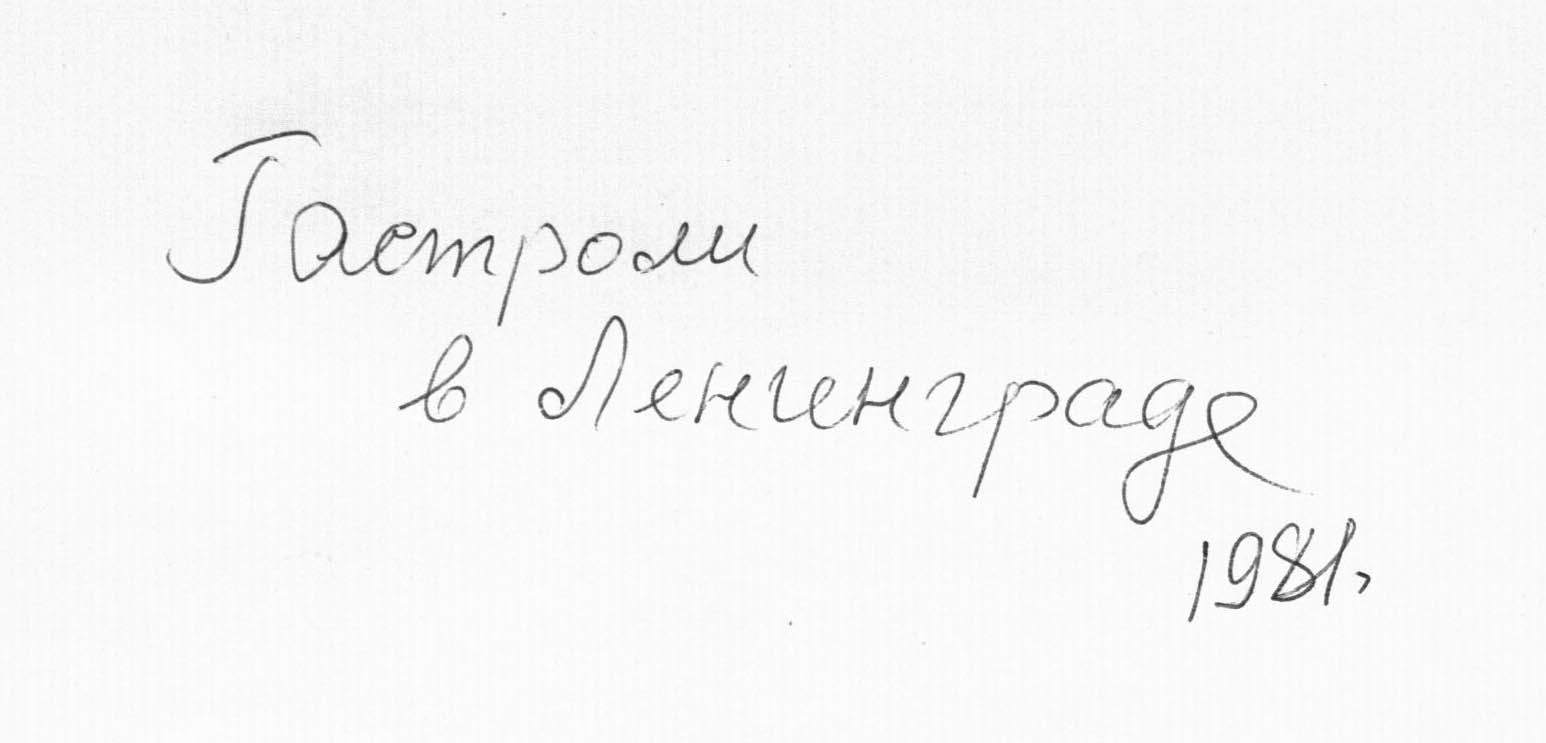 Гастроли
в Ленинграде
1981,